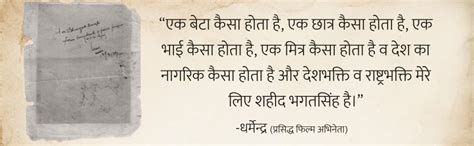 “एक बेटा कैसा होता है, एक छात्र कैसा होता है, एक
भाई कैसा होता है, एक मित्र कैसा होता है व देश का
नागरिक कैसा होता है और देशभक्ति व राष्ट्रभक्ति मेरे
लिए शहीद भगतसिंह है।”
-धर्मेन्द्र (प्रसिद्ध फिल्म अभिनेता)